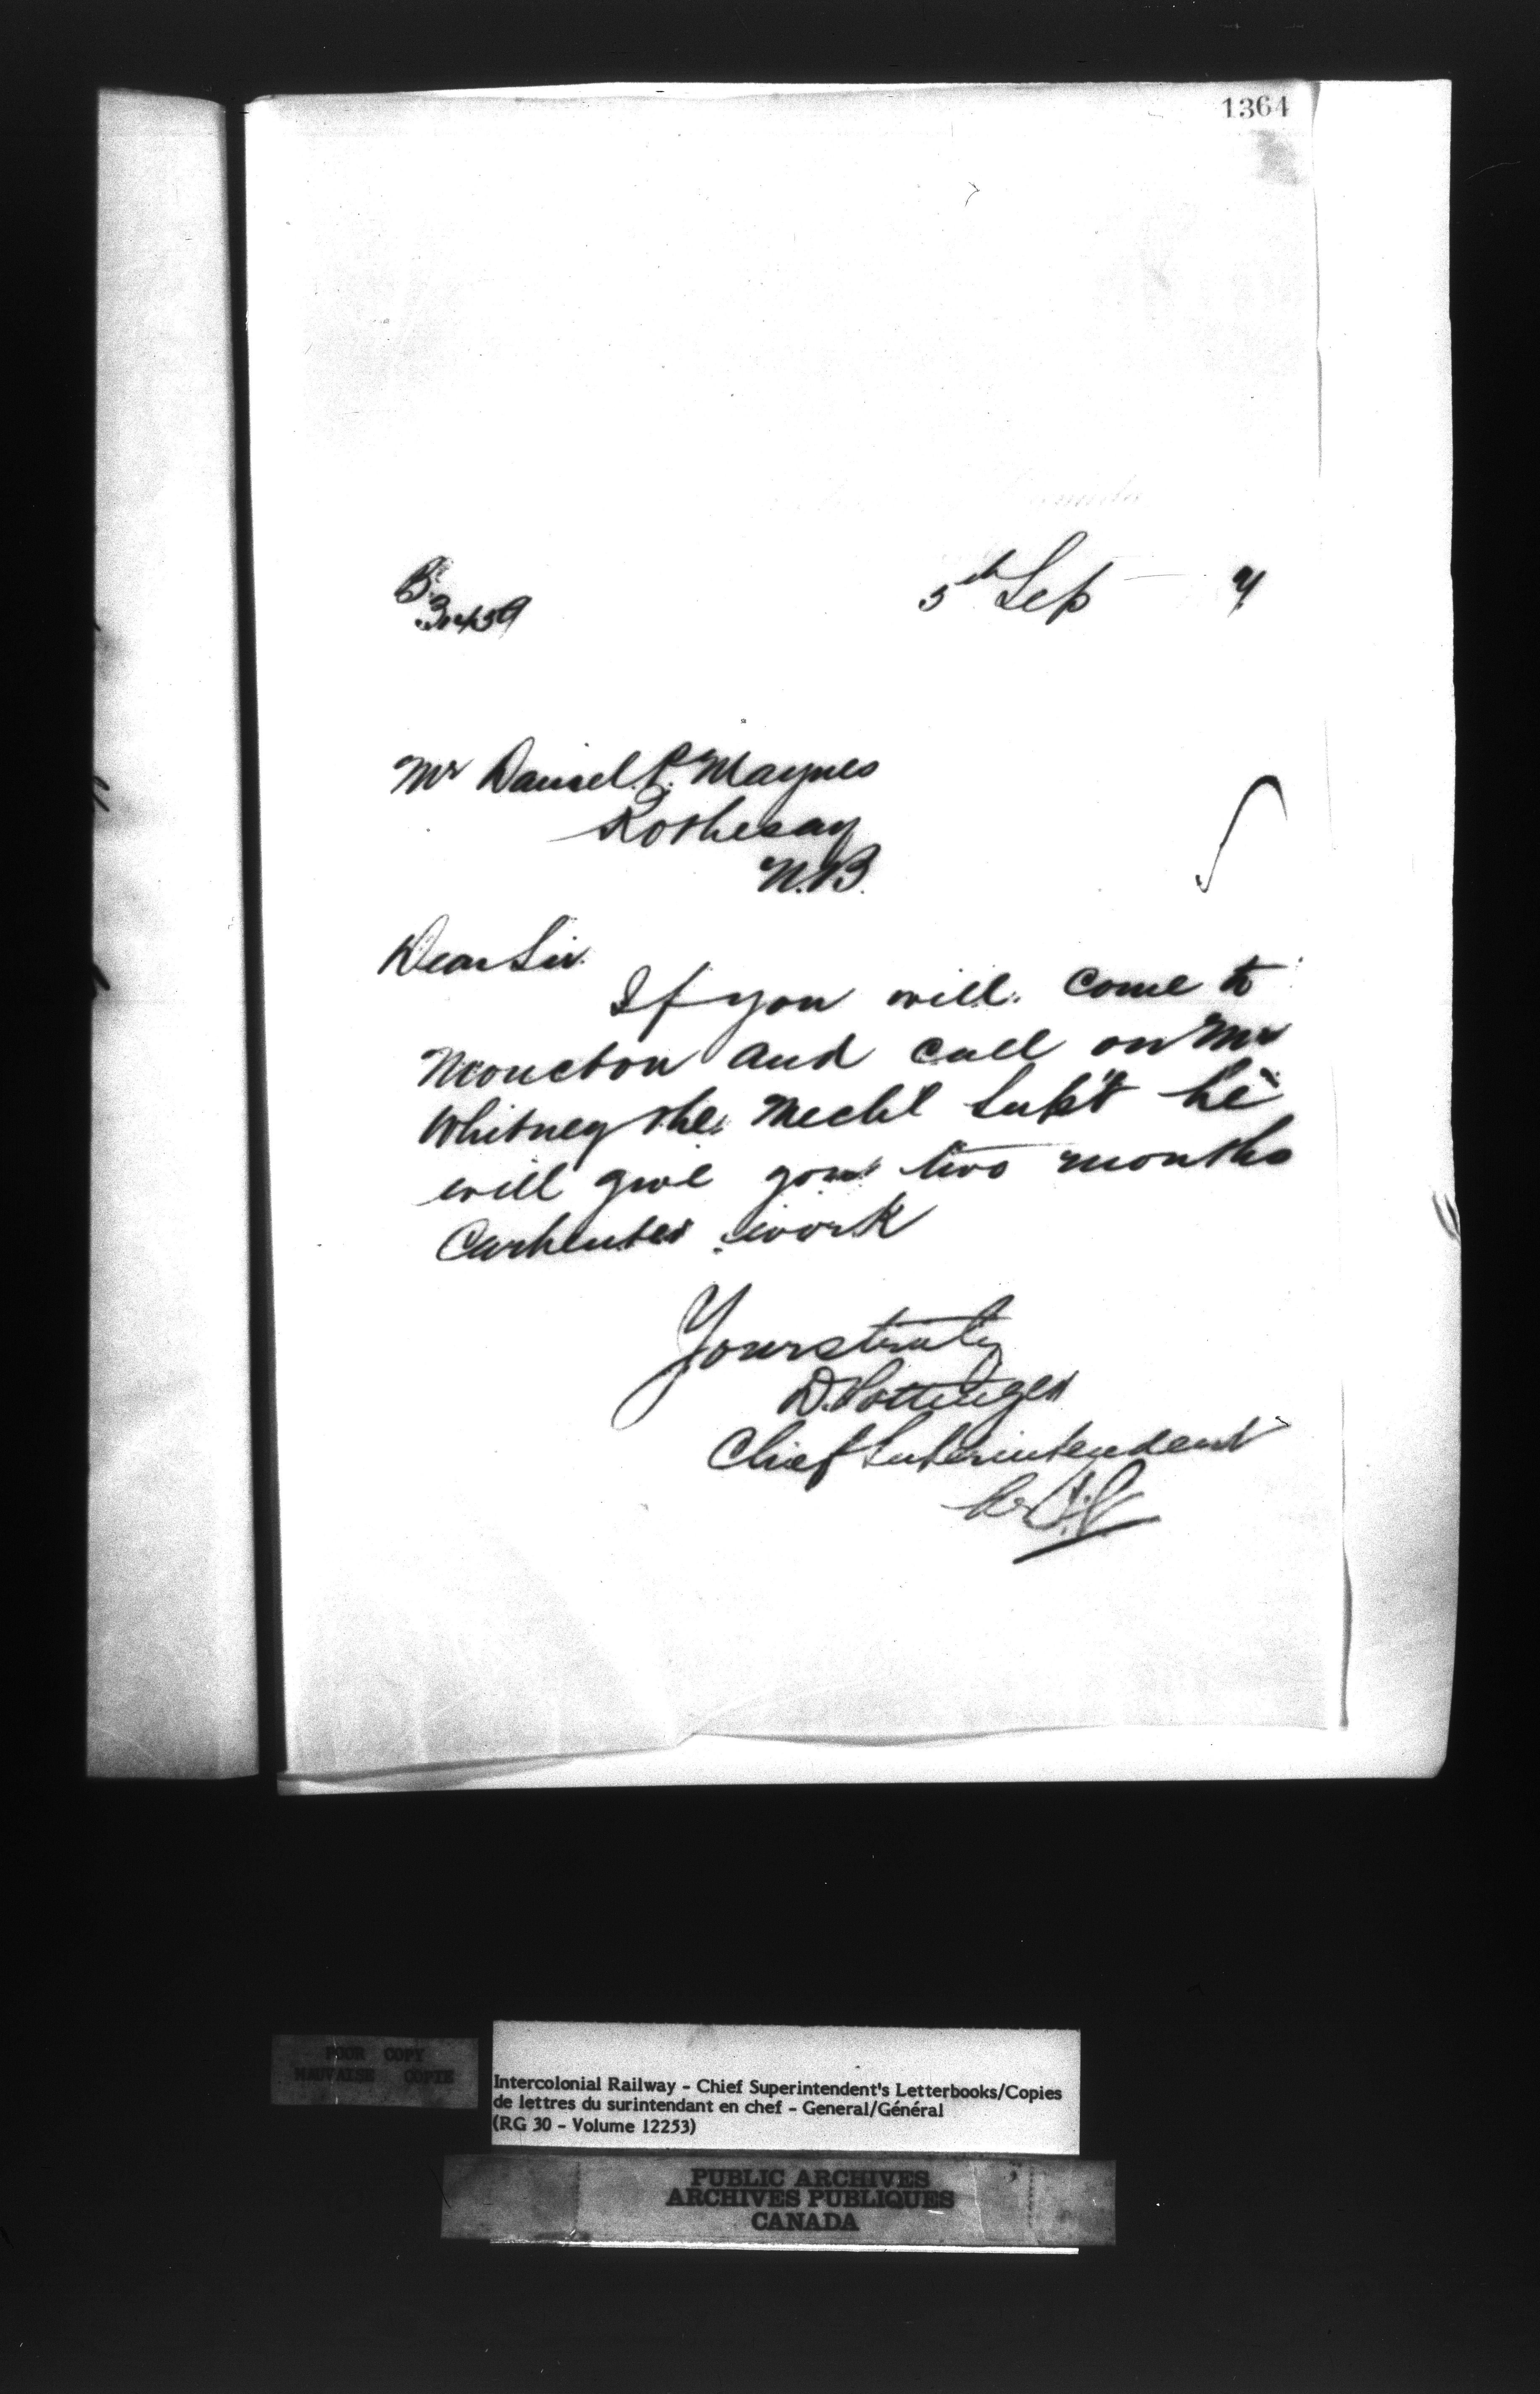 1364
5th Sep 7
B
30459
Mr Daniel P. Maynes
Rothesay
N.B.
Dear Sir
If you will come to
Moncton and call on Mr
Whitney the Mechl Supt he
will give you two months
Carpenter work
Yours truly
D. Pottinger
Chief Superintendent
POOR COPY
MAUVAISE COPIE
Intercolonial Railway - Chief Superintendent's Letterbooks/Copies
de lettres du surintendant en chef - General/Général
(RG 30 - Volume 12253)
PUBLIC ARCHIVES
ARCHIVES PUBLIQUES
CANADA